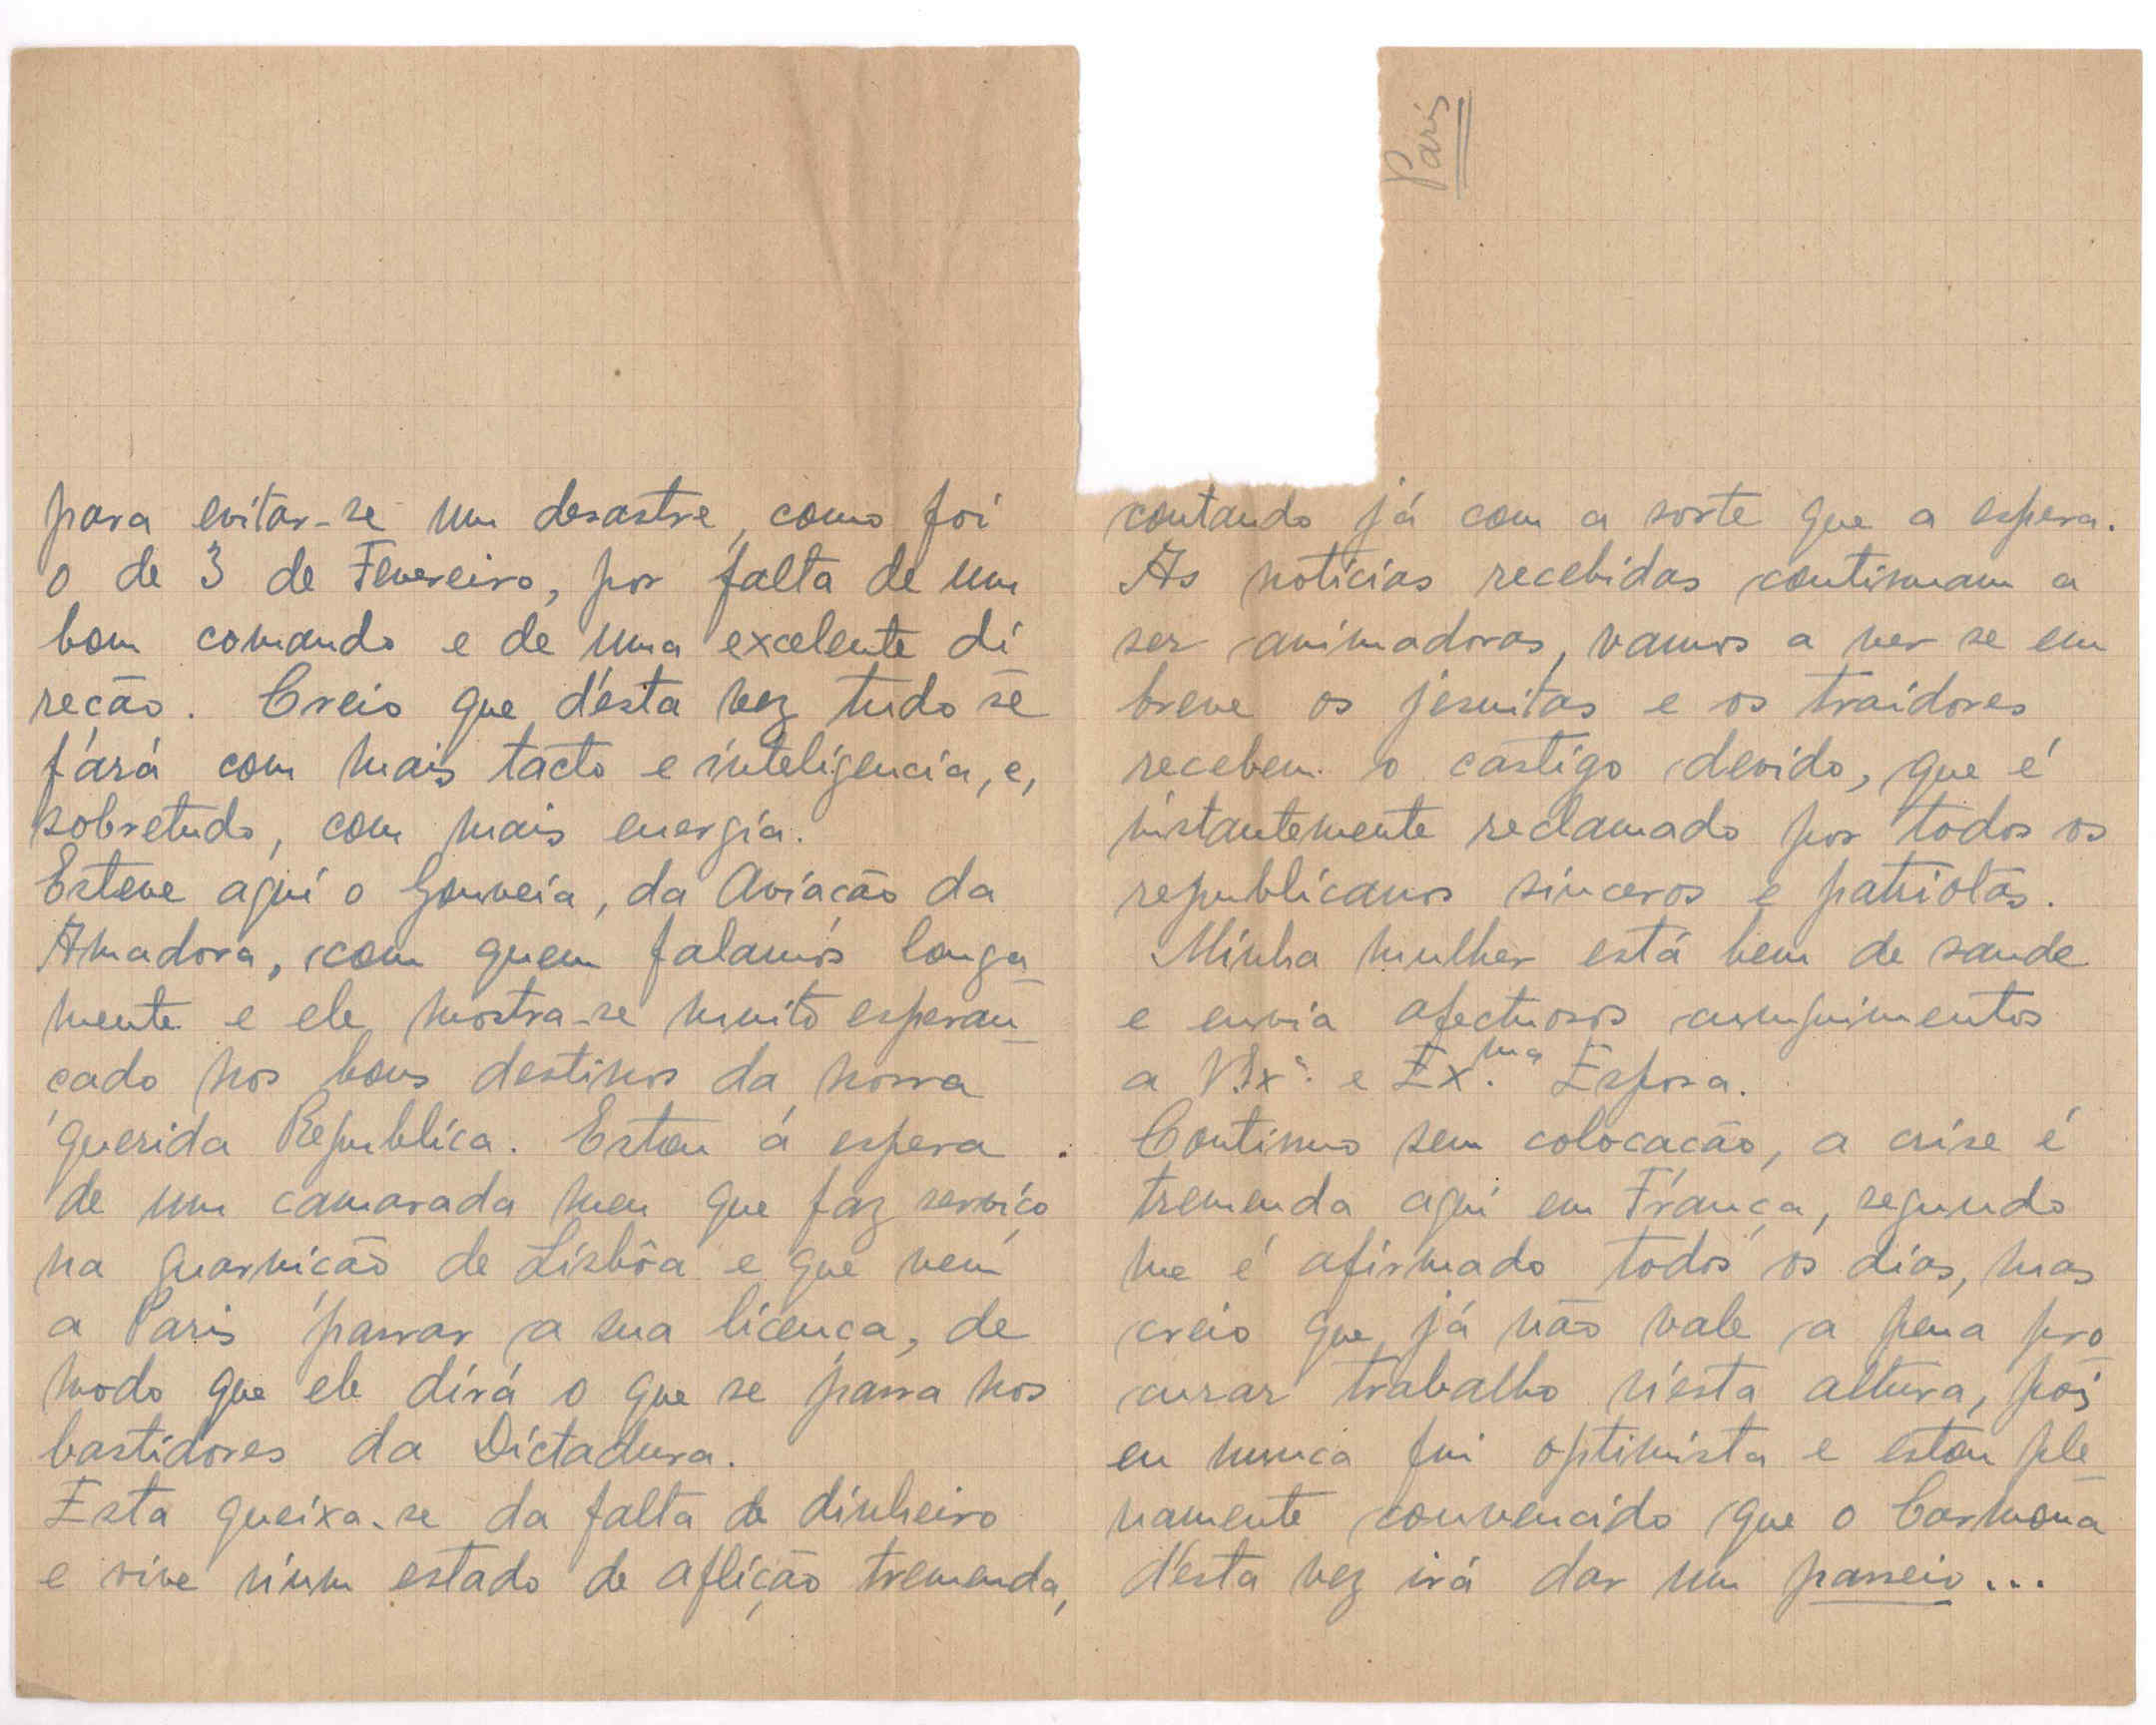 para evitar-se um desastre, como foi
o de 3 de Fevereiro, por falta de um
bom comando e de uma excelente di
reção. Creio que d'esta vez tudo se
fará com mais tacto e inteligencia, e,
sobretudo, com mais energia.
Esteve aqui o Gouveia, da Aviação da
Amadora, com quem falamos longa
mente e ele mostra-se muito esperan-
çado nos bons destinos da nossa
querida Republica. Estou á espera
de um camarada meu que faz serviço
na guarnição de Lisbôa e que vem
a Paris passar a sua licença, de
modo que ele dirá o que se passa nos
bastidores da Dictadura.
Esta queixa-se da falta de dinheiro
e vive n'um estado de aflição tremenda,
Paris
contando já com a sorte que a espera.
As noticias recebidas continuam a
ser animadoras, vamos a ver se em
breve os jesuitas e os traidores
recebem o castigo devido, que é
instantemente reclamado por todos os
republicanos sinceros e patriotas.
Minha mulher está bem de saude
e envia afectuosos cumprimentos
a V.Exª. e Ex.ma Esposa.
Continuo sem colocação, a crise é
tremenda aqui em França, segundo
me é afirmado todos os dias, mas
creio que já não vale a pena pro
curar trabalho n'esta altura, pois
eu nunca fui optimista e estou ple-
namente convencido que o Carmona
d'esta vez irá dar um passeio...